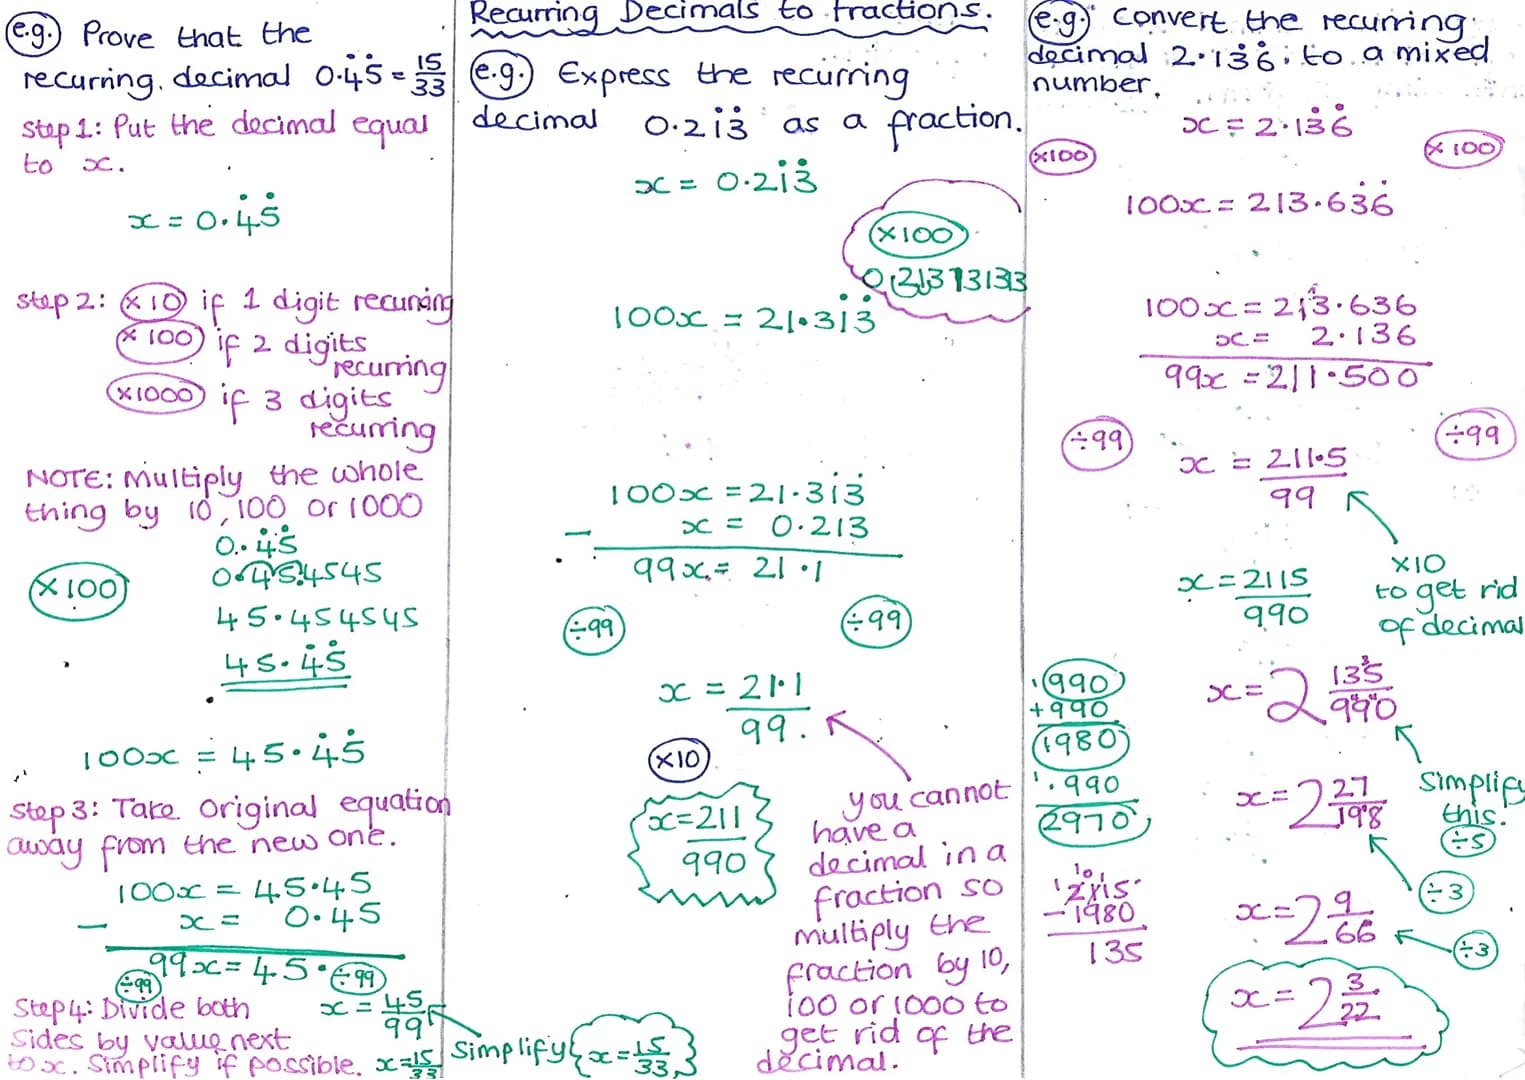 Recurring Decimals to fractions.
e.g. Prove that the
recurring decimal 0.4̇5̇ = 15/33
Step 1: Put the decimal equal
to x.
x = 0.4̇5̇
Step 2: ×10 if 1 digit recurring
×100 if 2 digits
recurring
×1000 if 3 digits
recurring
NOTE: Multiply the whole
thing by 10, 100 or 1000
0.4̇5̇
×100
0.454545
45.454545
45.4̇5̇
100x = 45.4̇5̇
Step 3: Take original equation
away from the new one.
100x = 45.45
− x = 0.45
99x = 45.
÷99 ÷99
Step 4: Divide both
sides by value next
to x. Simplify if possible.
x = 45/99
x = 15/33
Simplify x = 15/33
e.g. Express the recurring
decimal 0.21̇3̇ as a fraction.
x = 0.21̇3̇
×100
100x = 21.31̇3̇
100x = 21.31̇3̇
− x = 0.213
99x = 21.1
÷99 ÷99
x = 21.1/99.
×10
x = 211/990
you cannot
have a
decimal in a
fraction so
multiply the
fraction by 10,
100 or 1000 to
get rid of the
decimal.
e.g. Convert the recurring
decimal 2.13̇6̇ to a mixed
number.
x = 2.13̇6̇
×100 ×100
100x = 213.63̇6̇
100x = 213.636
x = 2.136
99x = 211.500
÷99 ÷99
x = 211.5/99
×10
to get rid
of decimal
x = 2115/990
990
+990
1980
990
2970
2115
−1980
135
x = 2 135/990
Simplify
this.
÷5
x = 2 27/198
÷3
x = 2 9/66
÷3
x = 2 3/22